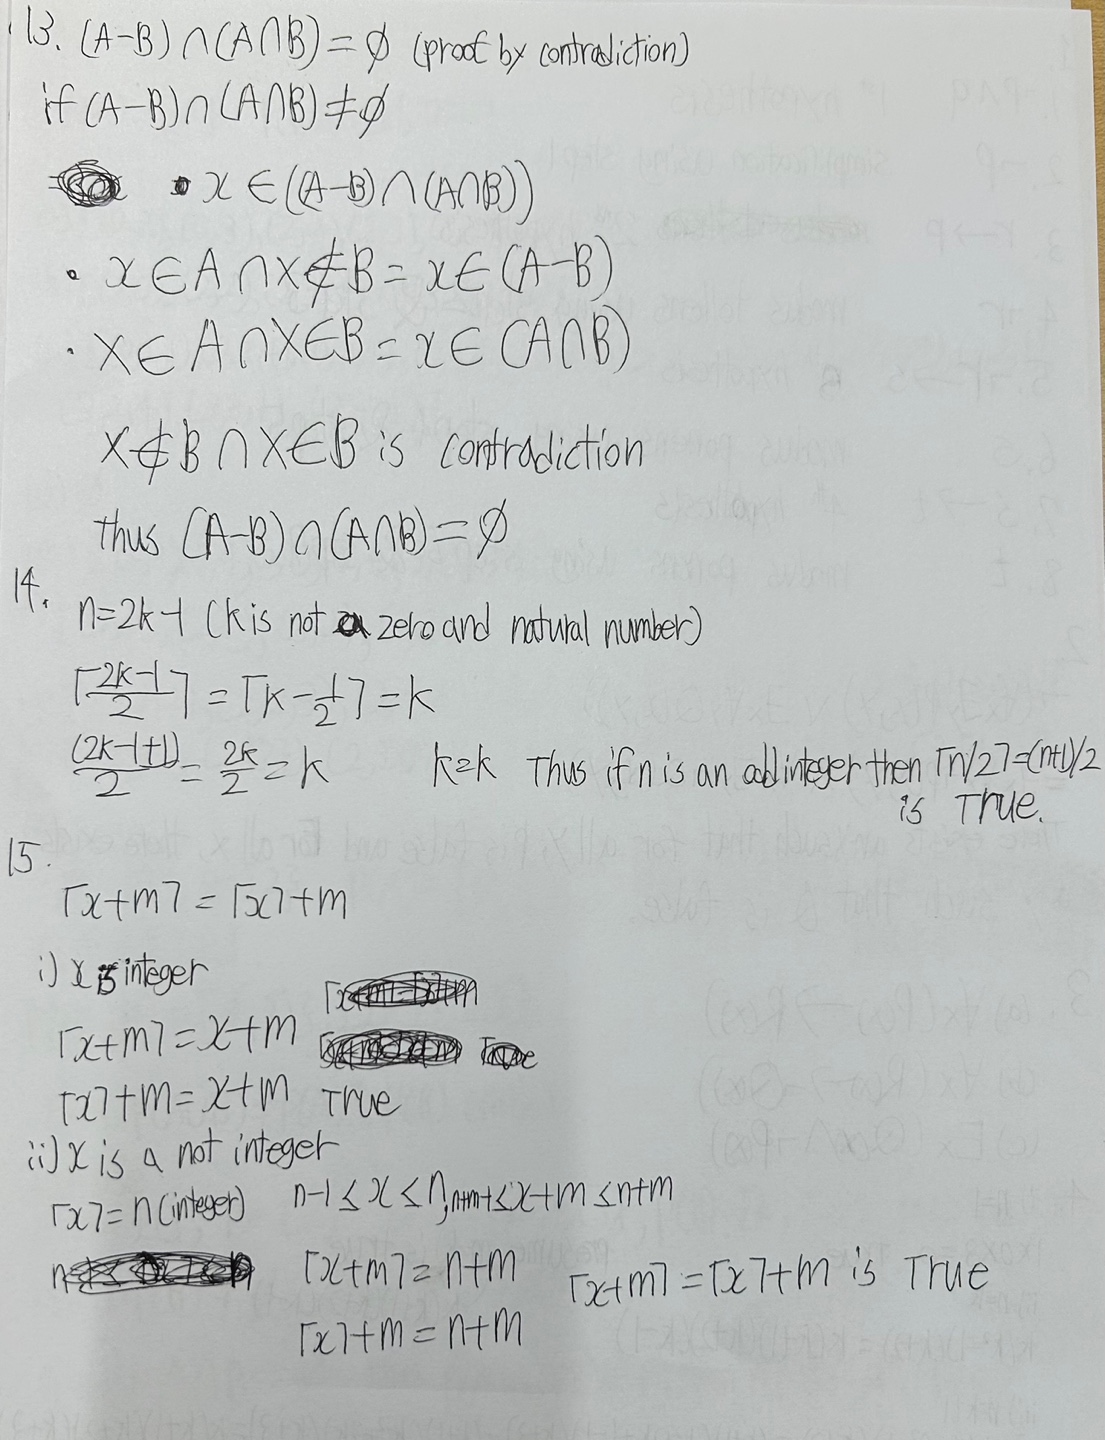 13. (A-B)∩(A∩B)=∅ (proof by contradiction)
if (A-B)∩(A∩B)≠∅
• x∈((A-B)∩(A∩B))
• x∈A∩x∉B = x∈(A-B)
• x∈A∩x∈B = x∈(A∩B)
x∉B∩x∈B is contradiction
thus (A-B)∩(A∩B)=∅
14.
n=2k-1 (k is not zero and natural number)
⌈(2k-1)/2⌉ = ⌈k-1/2⌉ = k
(2k-1+1)/2 = 2k/2 = k k=k Thus if n is an odd integer then ⌈n/2⌉=(n+1)/2
is True.
15.
⌈x+m⌉ = ⌈x⌉+m
i) x is integer
⌈x+m⌉ = x+m
⌈x⌉+m = x+m True
ii) x is a not integer
⌈x⌉ = n (integer) n-1 ≤ x ≤ n, n+m-1 ≤ x+m ≤ n+m
⌈x+m⌉ = n+m ⌈x+m⌉ = ⌈x⌉+m is True
⌈x⌉+m = n+m